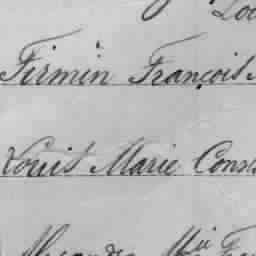 Firmin François
Louis Marie Cons
Alexandre Mie Fra